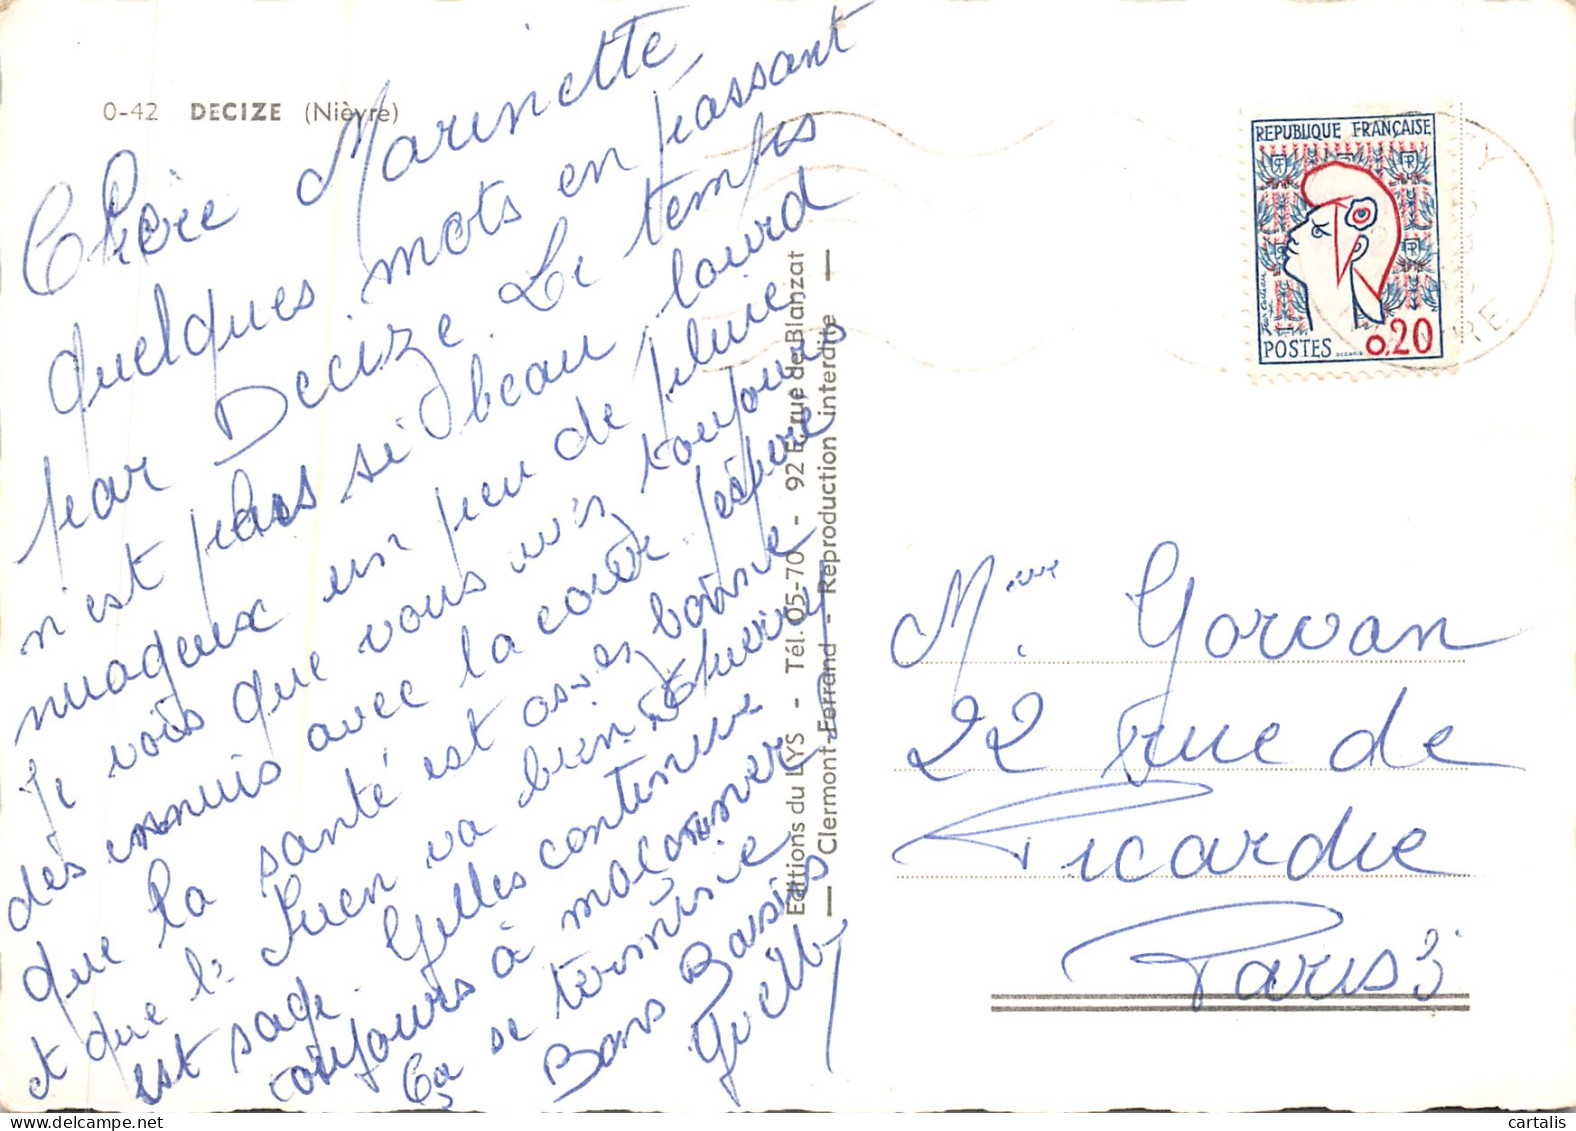 0-42 DECIZE (Nièvre)
Chère Marinette
quelques mots en passant
par Decize. Le temps
n'est pas si beau, lourd
nuageux un peu de pluie
Je vois que vous avez toujours
des ennuis avec la
que la santé est assez bonne
et que le Luen va bien.
est sage. Gilles continue
toujours à mal
Ça se termine
Bons Baisers
Editions du LYS - Tél. 05-70 - 92 E, rue de Blanzat
Clermont-Ferrand - Reproduction interdite
REPUBLIQUE FRANÇAISE
POSTES 0,20
Mme Gorvan
22 rue de
Picardie
Paris 3
cartalis.com